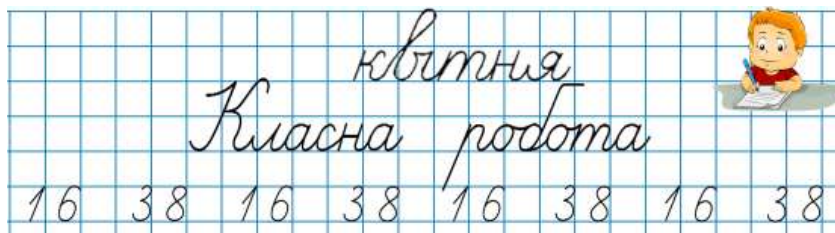 квітня
Класна робота
16 38 16 38 16 38 16 38